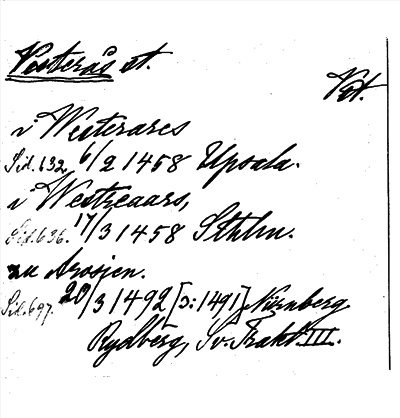 Västerås st.
Vst.
i Westerares
Sid. 632. 6/2 1458 Upsala.
i Westreaars,
Sid. 636. 17/3 1458 Sthlm.
zu Arosien.
Sid. 697. 20/3 1492 [ɔ: 1491] Nürnberg
Rydberg, Sv. Trakt. III.